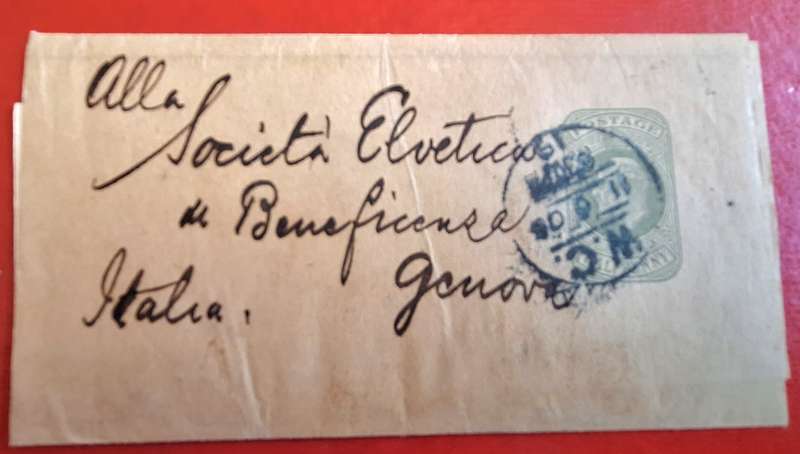 Alla
Società Elvetica
di Beneficenza
Genova
Italia.
POSTAGE
W.C.